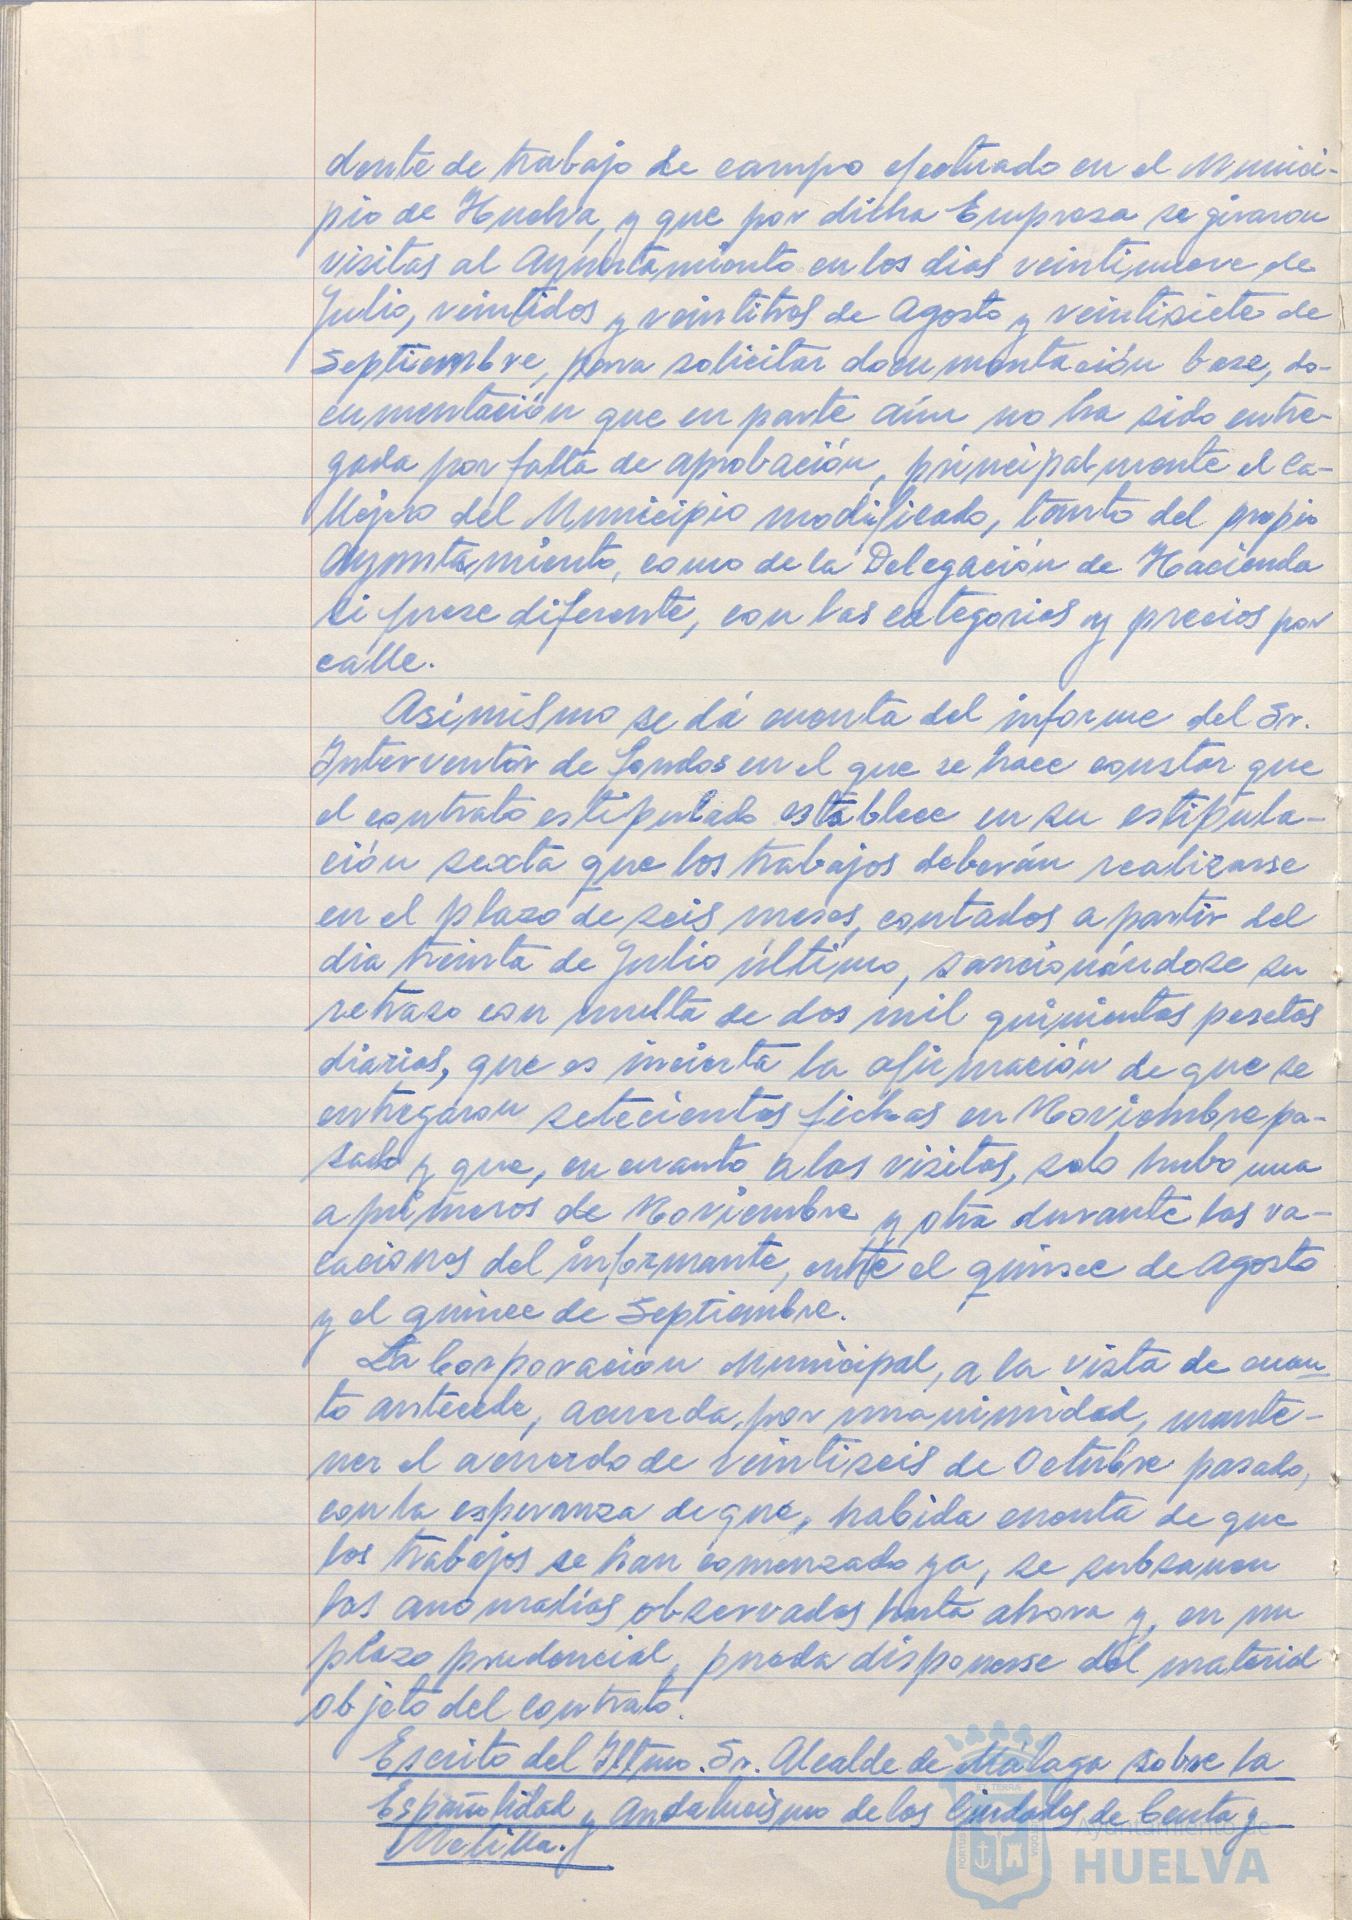 dente de trabajo de campo efectuado en el Munici-
pio de Huelva, y que por dicha Empresa se giraron
visitas al Ayuntamiento en los dias veintinueve de
Julio, veintidos y veintitres de Agosto y veintisiete de
Septiembre, para solicitar documentación base, do-
cumentación que en parte aún no ha sido entre-
gada por falta de aprobación, principalmente el Ca-
llejero del Municipio modificado, tanto del propio
Ayuntamiento, como de la Delegación de Hacienda
si fuese diferente, con las categorias y precios por
calle.
Asímismo se dá cuenta del informe del Sr.
Interventor de fondos en el que se hace constar que
el contrato estipulado establece en su estipula-
ción sexta que los trabajos deberán realizarse
en el plazo de seis meses, contados a partir del
dia treinta de Julio último, sancionándose su
retraso con multa de dos mil quinientas pesetas
diarias, que es incierta la afirmación de que se
entregaron setecientas fichas en Noviembre pa-
sado y que, en cuanto a las visitas, solo hubo una
a primeros de Noviembre y otra durante las va-
caciones del informante, entre el quince de Agosto
y el quince de Septiembre.
La Corporación Municipal, a la vista de cuan
to antecede, acuerda, por unanimidad, mante-
ner el acuerdo de veintiseis de Octubre pasado,
con la esperanza de que, habida cuenta de que
los trabajos se han comenzado ya, se subsanen
las anomalías observadas hasta ahora y, en un
plazo prudencial, pueda disponerse del material
objeto del contrato.
Escrito del Iltmo. Sr. Alcalde de Málaga sobre la
Españolidad y Andalucismo de las Ciudades de Ceuta y
Melilla.
Ayuntamiento de
HUELVA